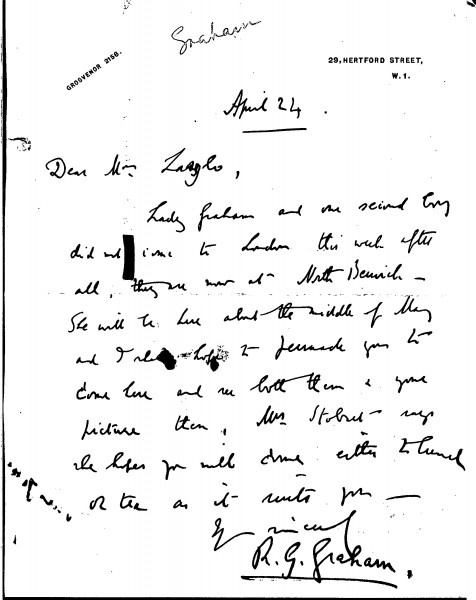 Graham
GROSVENOR 2158.
29, HERTFORD STREET,
W.1.
April 24.
Dear Mrs Laszlo,
Lady Graham and our second boy
did not come to London this week after
all, they are now at North Berwick —
She will be here about the middle of May
and I hope to persuade you to
come here and see both them & your
picture then, Mrs Stobart says
she hopes you will come either to lunch
or tea as it suits you —
R. G. Graham.